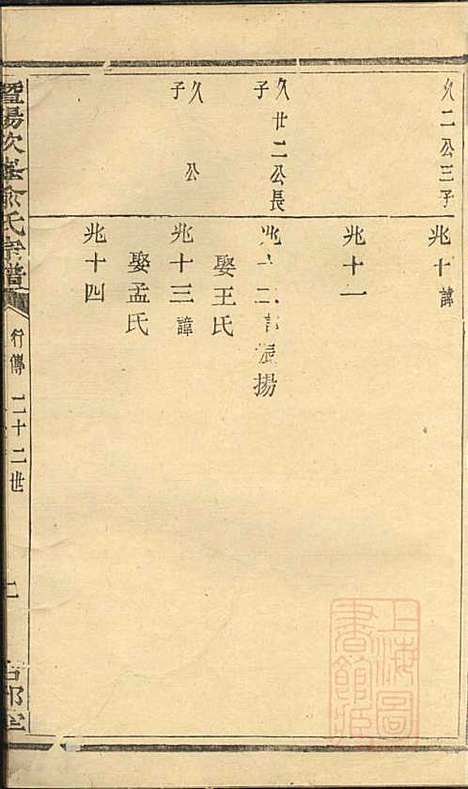 久二公三子
兆十諱
兆十一
久廿二公長子
兆十二諱振揚
娶王氏
久公子
兆十三諱
娶孟氏
兆十四
暨陽次峯俞氏宗譜
行傳 二十二世
上海圖書館藏